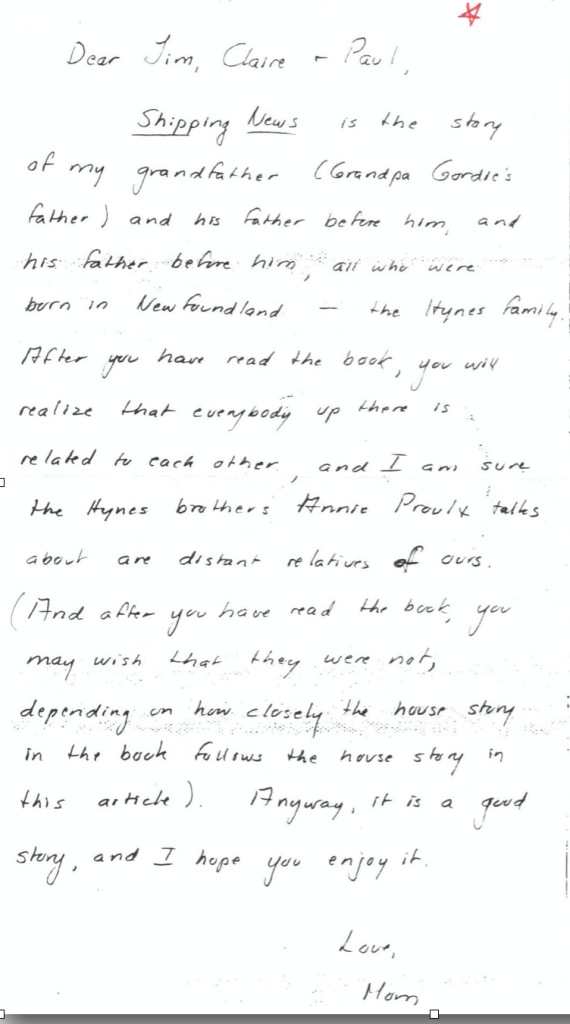 Dear Jim, Claire + Paul,
Shipping News is the story
of my grandfather (Grandpa Gordie's
father) and his father before him, and
his father before him, all who were
born in Newfoundland — the Hynes family.
After you have read the book, you will
realize that everybody up there is
related to each other, and I am sure
the Hynes brothers Annie Proulx talks
about are distant relatives of ours.
(And after you have read the book, you
may wish that they were not,
depending on how closely the house story
in the book follows the house story in
this article). Anyway, it is a good
story, and I hope you enjoy it.
Love,
Mom